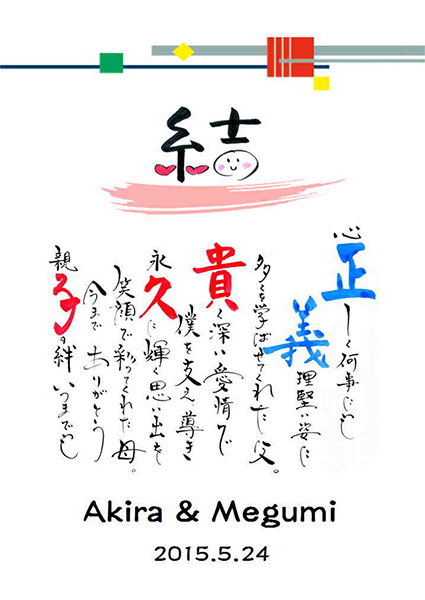 結
心正しく何事にも
義理堅い姿に
多くを学ばせてくれた父。
貴く深い愛情で
僕を支え導き
永久に輝く思い出を
笑顔で彩ってくれた母。
今までありがとう
親子の絆いつまでも
Akira & Megumi
2015.5.24